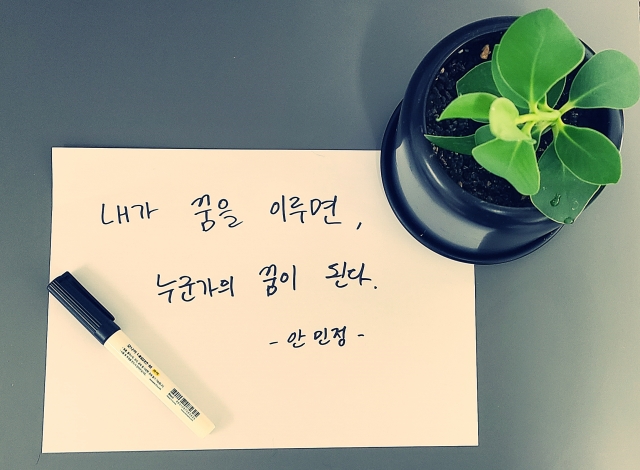 내가 꿈을 이루면,
누군가의 꿈이 된다.
- 안 민정 -